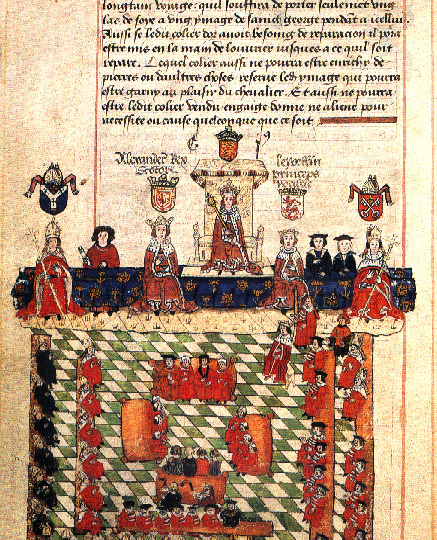 longtain voyaige: quil souffira de porter seulement ung
las de soye a ung ymage de sainct george pendant a icelluy.
Aussi se ledit colier dor avoit besoing de reparacion il pora
estre mis en la main de louvrier jusques a ce quil soit
repare. Lequel colier aussi ne pourra estre enrichy de
pierres ou daultres choses reserve led ymage qui pourra
estre garny au plaisir du chevalier. Et aussi ne pourra
estre ledit colier vendu engaige donne ne aliene pour
necessite ou cause quelconque que ce soit
E 9
Alexander Rex
Scotorum
princeps